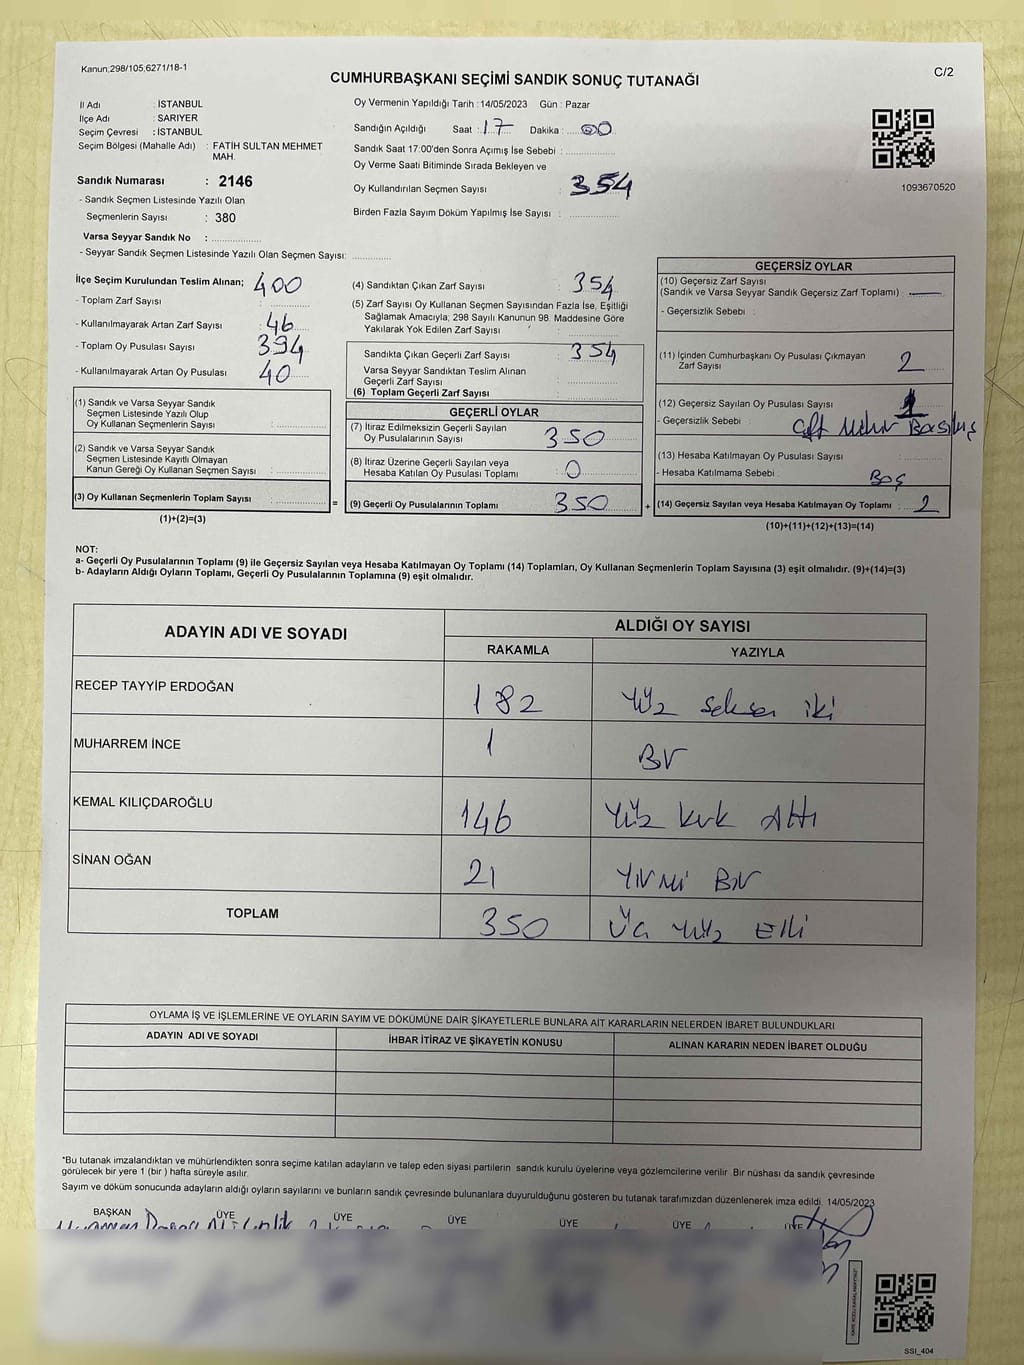 Kanun,298/105;6271/18-1
C/2
CUMHURBAŞKANI SEÇİMİ SANDIK SONUÇ TUTANAĞI
İl Adı : İSTANBUL
İlçe Adı : SARIYER
Seçim Çevresi : İSTANBUL
Seçim Bölgesi (Mahalle Adı) : FATİH SULTAN MEHMET
MAH.
Sandık Numarası : 2146
- Sandık Seçmen Listesinde Yazılı Olan
Seçmenlerin Sayısı : 380
Varsa Seyyar Sandık No :
- Seyyar Sandık Seçmen Listesinde Yazılı Olan Seçmen Sayısı:
Oy Vermenin Yapıldığı Tarih :14/05/2023 Gün : Pazar
Sandığın Açıldığı Saat : 17 Dakika : 00
Sandık Saat 17:00'den Sonra Açımış İse Sebebi :
Oy Verme Saati Bitiminde Sırada Bekleyen ve
Oy Kullandırılan Seçmen Sayısı 354
Birden Fazla Sayım Döküm Yapılmış İse Sayısı :
1093670520
İlçe Seçim Kurulundan Teslim Alınan; 400
- Toplam Zarf Sayısı
- Kullanılmayarak Artan Zarf Sayısı : 46
- Toplam Oy Pusulası Sayısı 394
- Kullanılmayarak Artan Oy Pusulası 40
(1) Sandık ve Varsa Seyyar Sandık
Seçmen Listesinde Yazılı Olup
Oy Kullanan Seçmenlerin Sayısı :
(2) Sandık ve Varsa Seyyar Sandık
Seçmen Listesinde Kayıtlı Olmayan
Kanun Gereği Oy Kullanan Seçmen Sayısı :
(3) Oy Kullanan Seçmenlerin Toplam Sayısı :
(1)+(2)=(3)
=
(4) Sandıktan Çıkan Zarf Sayısı : 354
(5) Zarf Sayısı Oy Kullanan Seçmen Sayısından Fazla İse, Eşitliği
Sağlamak Amacıyla; 298 Sayılı Kanunun 98. Maddesine Göre
Yakılarak Yok Edilen Zarf Sayısı :
Sandıkta Çıkan Geçerli Zarf Sayısı : 354
Varsa Seyyar Sandıktan Teslim Alınan
Geçerli Zarf Sayısı :
(6) Toplam Geçerli Zarf Sayısı :
GEÇERLİ OYLAR
(7) İtiraz Edilmeksizin Geçerli Sayılan
Oy Pusulalarının Sayısı : 350
(8) İtiraz Üzerine Geçerli Sayılan veya
Hesaba Katılan Oy Pusulası Toplamı : 0
(9) Geçerli Oy Pusulalarının Toplamı : 350
+
GEÇERSİZ OYLAR
(10) Geçersiz Zarf Sayısı
(Sandık ve Varsa Seyyar Sandık Geçersiz Zarf Toplamı) :
- Geçersizlik Sebebi :
(11) İçinden Cumhurbaşkanı Oy Pusulası Çıkmayan
Zarf Sayısı : 2
(12) Geçersiz Sayılan Oy Pusulası Sayısı : 1
- Geçersizlik Sebebi : Çift Mühür Basılmış
(13) Hesaba Katılmayan Oy Pusulası Sayısı :
- Hesaba Katılmama Sebebi : Boş
(14) Geçersiz Sayılan veya Hesaba Katılmayan Oy Toplamı : 2
(10)+(11)+(12)+(13)=(14)
NOT:
a- Geçerli Oy Pusulalarının Toplamı (9) ile Geçersiz Sayılan veya Hesaba Katılmayan Oy Toplamı (14) Toplamları, Oy Kullanan Seçmenlerin Toplam Sayısına (3) eşit olmalıdır. (9)+(14)=(3)
b- Adayların Aldığı Oyların Toplamı, Geçerli Oy Pusulalarının Toplamına (9) eşit olmalıdır.
ADAYIN ADI VE SOYADI
ALDIĞI OY SAYISI
RAKAMLA YAZIYLA
RECEP TAYYİP ERDOĞAN 182 Yüz seksen iki
MUHARREM İNCE 1 Bir
KEMAL KILIÇDAROĞLU 146 Yüz kırk Altı
SİNAN OĞAN 21 Yirmi Bir
TOPLAM 350 Üç Yüz Elli
OYLAMA İŞ VE İŞLEMLERİNE VE OYLARIN SAYIM VE DÖKÜMÜNE DAİR ŞİKAYETLERLE BUNLARA AİT KARARLARIN NELERDEN İBARET BULUNDUKLARI
ADAYIN ADI VE SOYADI İHBAR İTİRAZ VE ŞİKAYETİN KONUSU ALINAN KARARIN NEDEN İBARET OLDUĞU
*Bu tutanak imzalandıktan ve mühürlendikten sonra seçime katılan adayların ve talep eden siyasi partilerin sandık kurulu üyelerine veya gözlemcilerine verilir. Bir nüshası da sandık çevresinde
görülecek bir yere 1 (bir) hafta süreyle asılır.
Sayım ve döküm sonucunda adayların aldığı oyların sayılarını ve bunların sandık çevresinde bulunanlara duyurulduğunu gösteren bu tutanak tarafımızdan düzenlenerek imza edildi. 14/05/2023
BAŞKAN ÜYE ÜYE ÜYE ÜYE ÜYE ÜYE
SSI_404